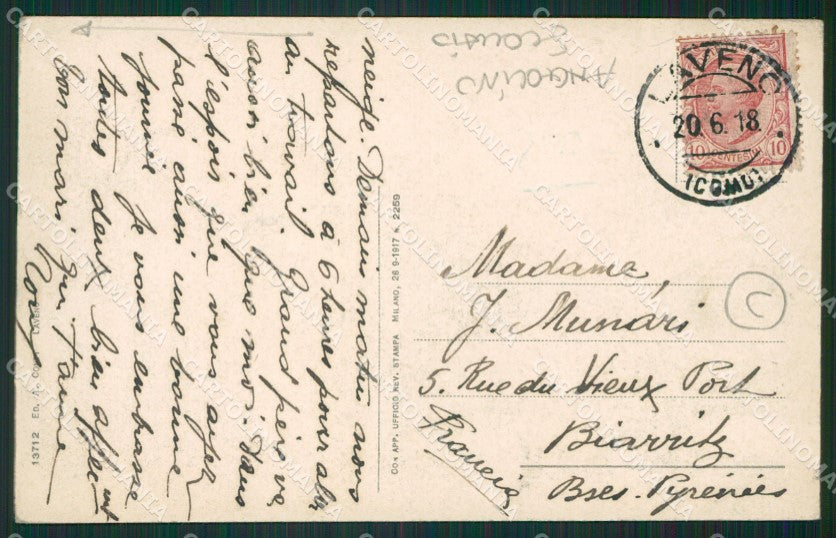 neige. Demain matin nous
repartons à 6 heures pour aller
au travail. Grand père va
aussi bien que moi. Dans
l'espoir que vous ayez
passé aussi une bonne
journée je vous embrasse
toutes deux bien affect
Ton mari qui t'aime
ANGOLINO
Madame,
J. Munari
5. Rue du Vieux Port
Biarritz
Bses. Pyrénées
(Francia)
LAVENO
20.6.18.
(COMO)
10 CENTES 10
CON APP. UFFICIO REV. STAMPA MILANO, 26 9-1917 N. 2259
13712 ED.
C
CARTOLINOMANIA